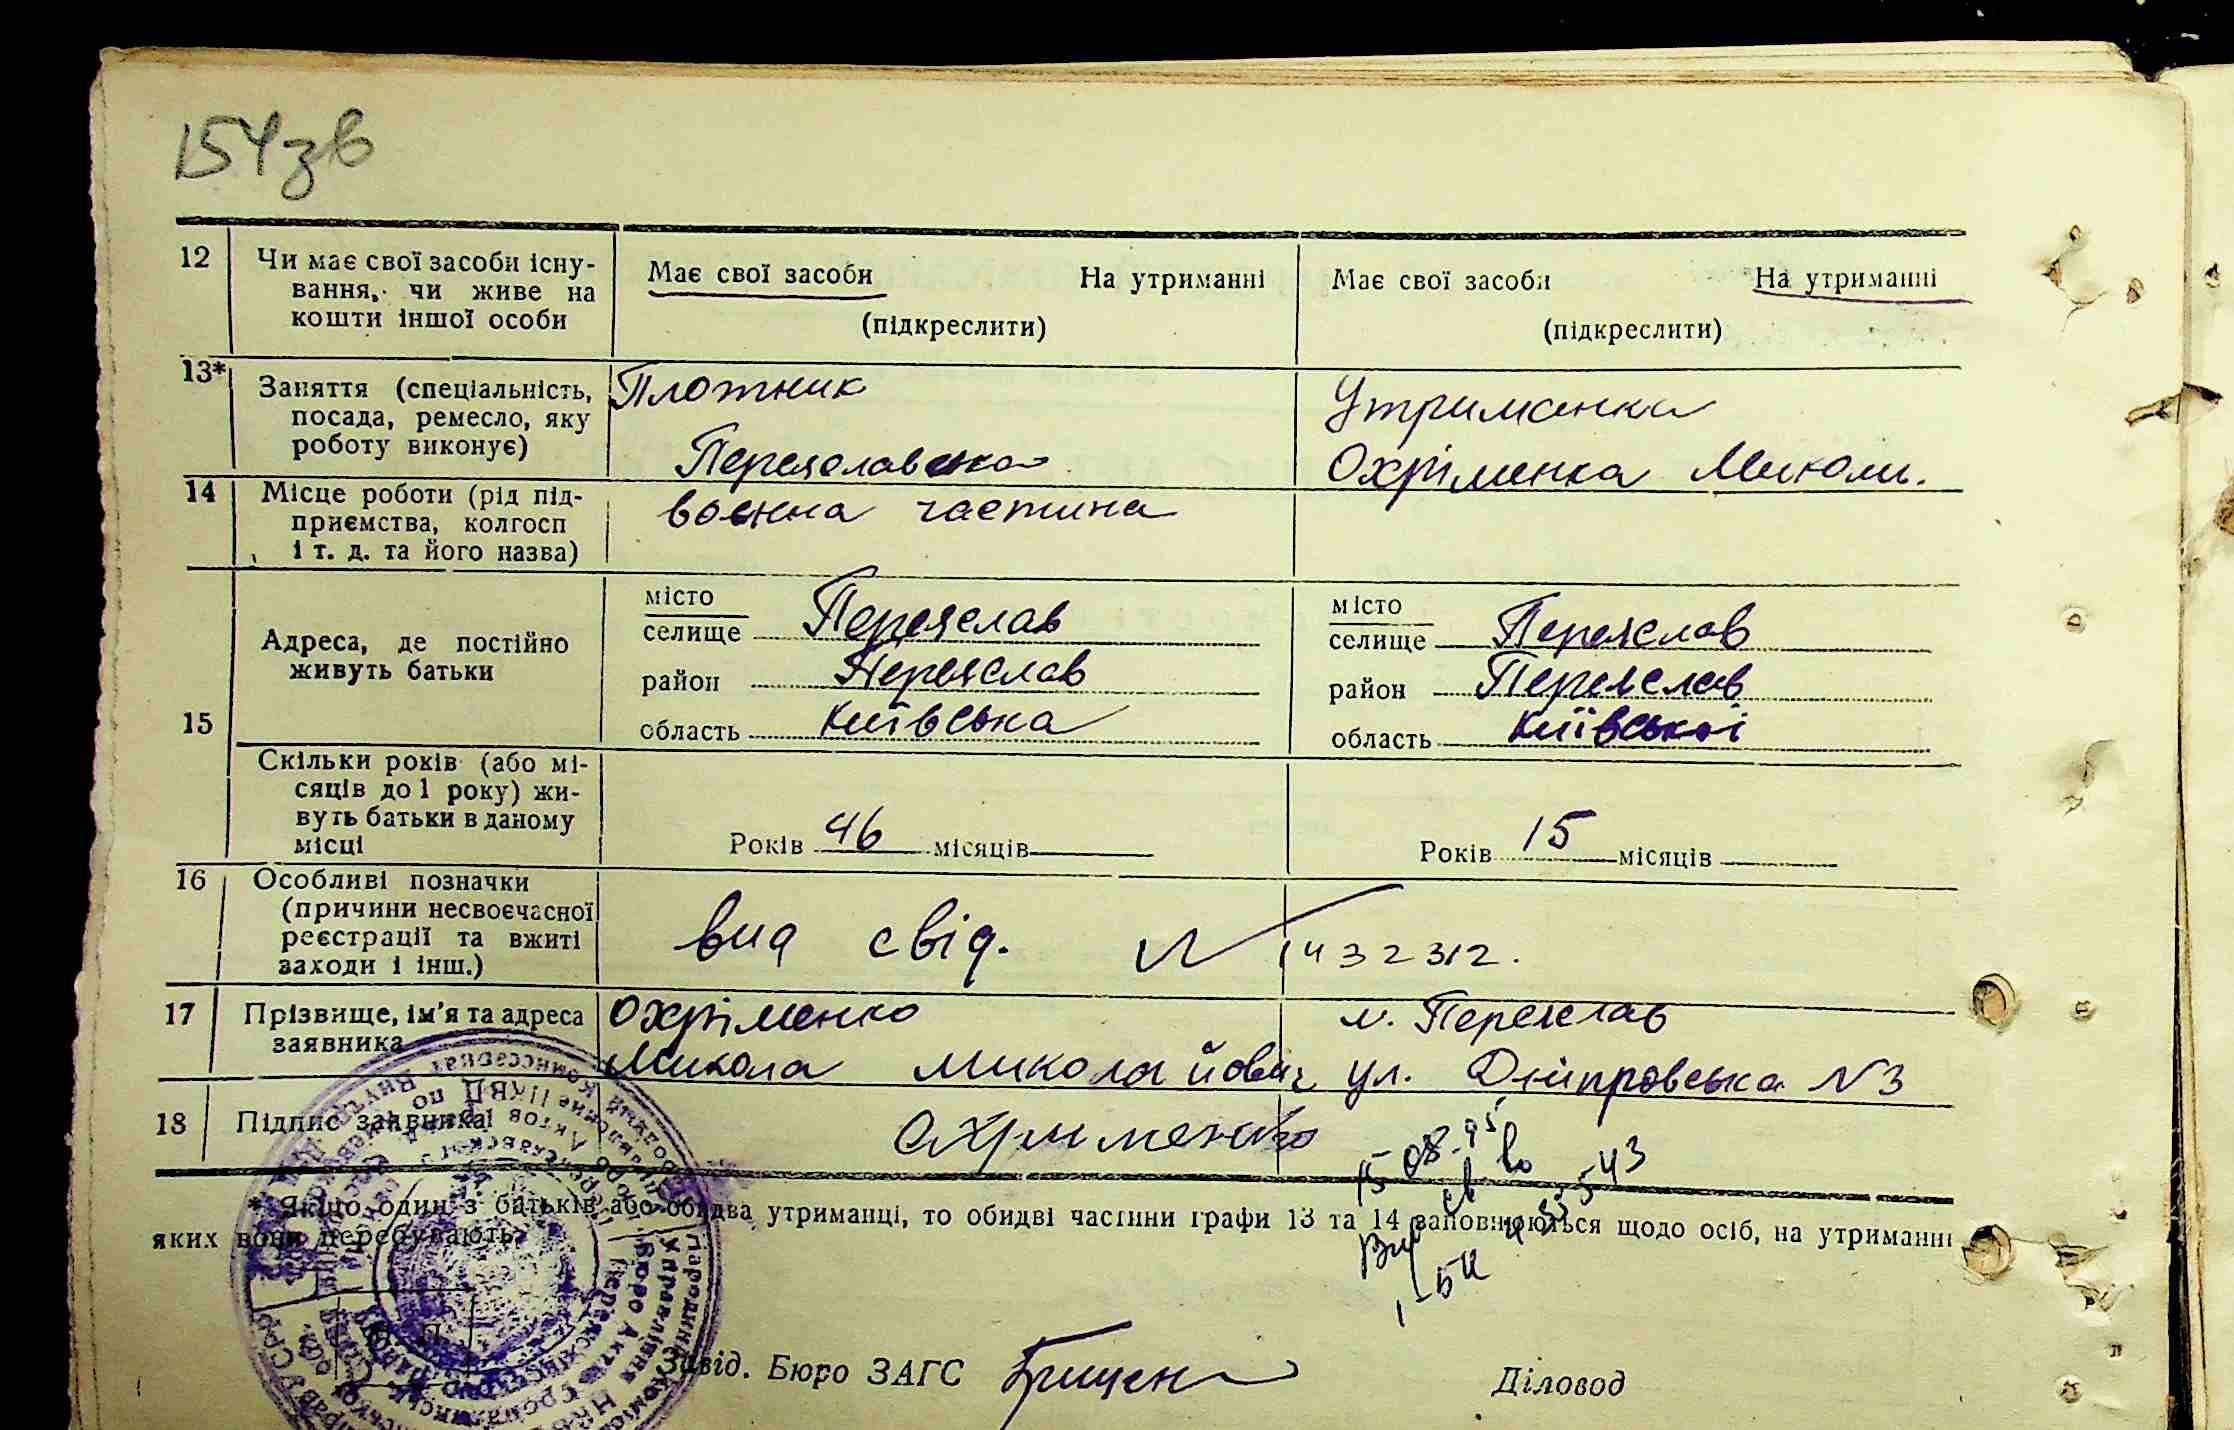 154зв
12 Чи має свої засоби існу-
вання, чи живе на
кошти іншої особи
Має свої засоби На утриманні
(підкреслити)
Має свої засоби На утриманні
(підкреслити)
13* Заняття (спеціальність,
посада, ремесло, яку
роботу виконує)
Плотник
Утриманка
Переяславська
Охріменка Миколи.
14 Місце роботи (рід під-
приємства, колгосп
і т. д. та його назва)
воєнна частина
15 Адреса, де постійно
живуть батьки
місто
селище Переяслав
район Переяслав
область Київська
місто
селище Переяслав
район Переяслав
область Київської
Скільки років (або мі-
сяців до 1 року) жи-
вуть батьки в даному
місці
Років 46 місяців
Років 15 місяців
16 Особливі позначки
(причини несвоєчасної
реєстрації та вжиті
заходи і інш.)
вид свід. N 1432312.
17 Прізвище, ім'я та адреса
заявника
Охріменко м. Переяслав
Микола Миколайович ул. Дніпровська N3
18 Підпис заявника
Охрименко
15 08.95
* Якщо один з батьків або обидва утриманці, то обидві частини графи 13 та 14 заповнюються щодо осіб, на утриманні
яких вони перебувають.
І-БК
Завід. Бюро ЗАГС Грищен
Діловод